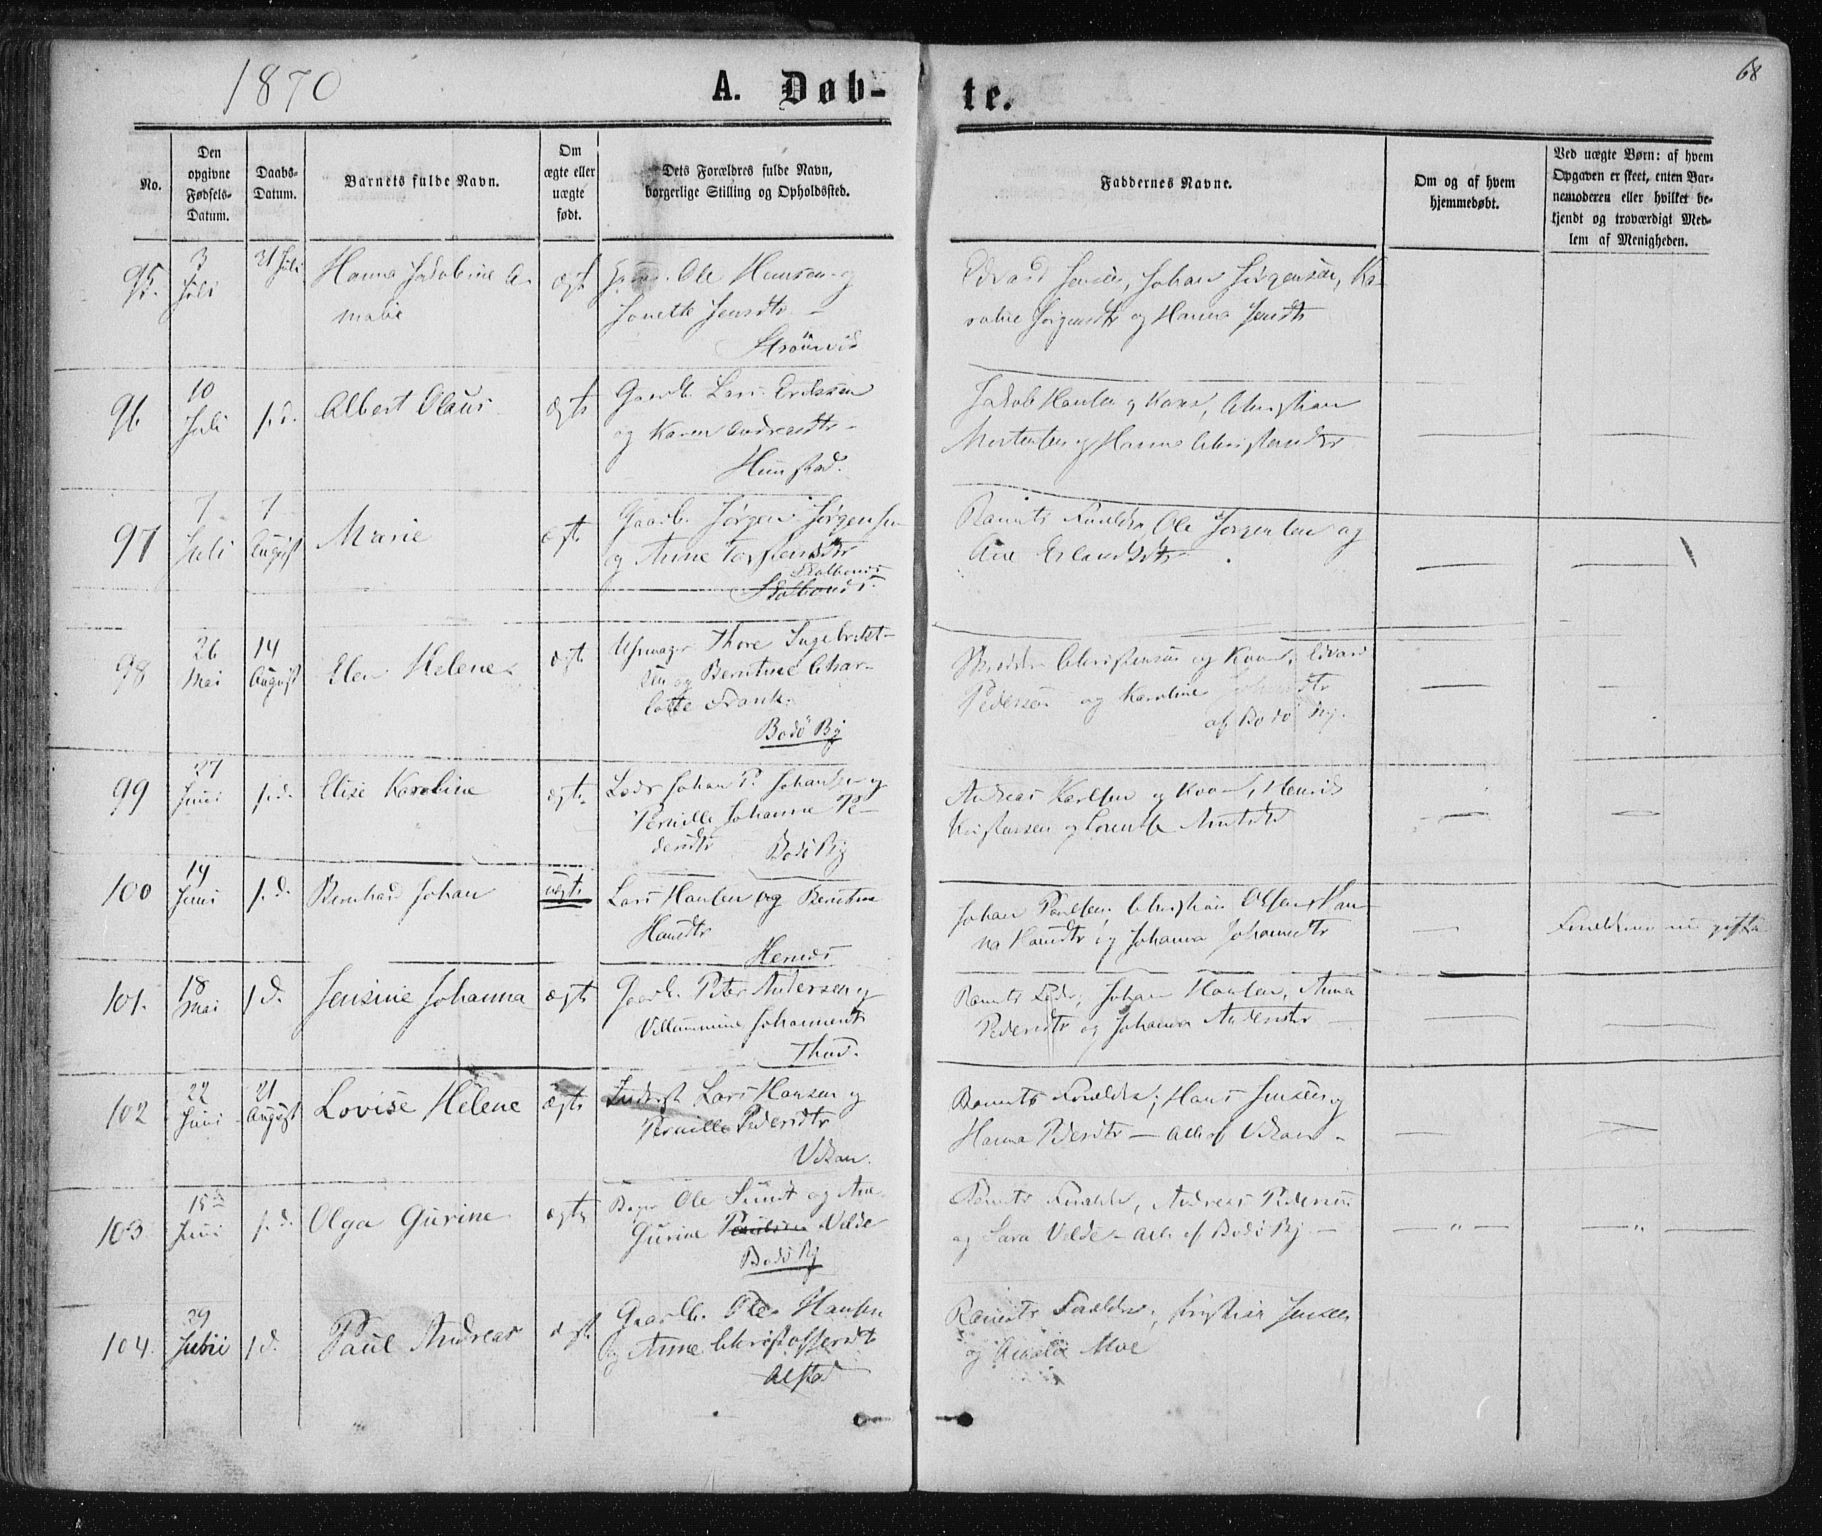 1870
A. Døb-
te.
68
No.
Den
opgivne
Fødsels-
Datum.
Daabs-
Datum.
Barnets fulde Navn.
Om
ægte eller
uægte
født.
Dets Forældres fulde Navn,
borgerlige Stilling og Opholdssted.
Faddernes Navne.
Om og af hvem
hjemmedøbt.
Ved uægte Børn: af hvem
Opgaven er skeet, enten Bar-
nemoderen eller hvilket be-
kjendt og troværdigt Med-
lem af Menigheden.
95.
3
Juli
31 Juli
Hanna Jakobine A-
malie
ægt
Ole Hansen og
Jensdtr
Edvard Jensen, Johan Jørgensen, Ka-
Jørgensdtr og Hanna Jensdtr
96.
10
Juli
s.d.
Albert Olaus
ægte
Gaardb. Lars Eriksen
og Karen Andreasdtr
Hunstad.
Jakob Hansen og Kone, Christian
Mortensen og Hanna
97
7
Juli
7
August
Marie
ægte
Gaardb. Jørgen Jørgensen
og Anne
Barnets Forældre, Ole Jørgensen og
Ane Erlandsdtr
98
26
Mai
14
August
Elen Helene
ægte
Uhrmager Thore Ingebrigt-
sen og Berntine Char-
lotte Frank.
Bodø By
Christensen og Kone, Edvard
Pedersen og Karoline
af Bodø By.
99
27
Juni
s.d.
Elise Karoline
ægte
Lods Johan P. Johansen og
Pernille Johanna Pe-
dersdtr
Bodø By
Andreas Karlsen og Kone, Henrik
Kristensen og Lorentse
100
19
Juni
s.d.
Bernhard Johan
uægte
Lars Hansen og Berntine
Hansdtr
Hernes
Johan Paulsen, Christian Olsen, Han-
na Hansdtr og Johanna Johannesdtr
Forældrene nu gifte
101.
18
Mai
s.d.
Jensine Johanna
ægte
Gaardb. Peter Andersen og
Villummine Johannesdtr
Barnets Fader, Johan Hansen, Anna
Pedersdtr og Johanna Andersdtr
102
22
Juni
21
August
Lovise Helene
ægte
Inderst Lars Hansen og
Pernille Pedersdtr
Vikan.
Barnets Forældre, Hans Jensen og
Hanna Pedersdtr – Alle af Vikan
103
15de
Juni
s.d.
Olga Gurine
ægte
Bager Ole Sund og Ane
Gurine Velde
Bodø By
Barnets Forældre, Andreas Pedersen
og Sara Velde – Alle af Bodø By
104.
29
s.d.
Paul Andreas
ægte
Gaardb. Ole Hansen
og Anne Christoffersdtr
Alstad
Barnets Forældre, Kristian Jensen
og Moe